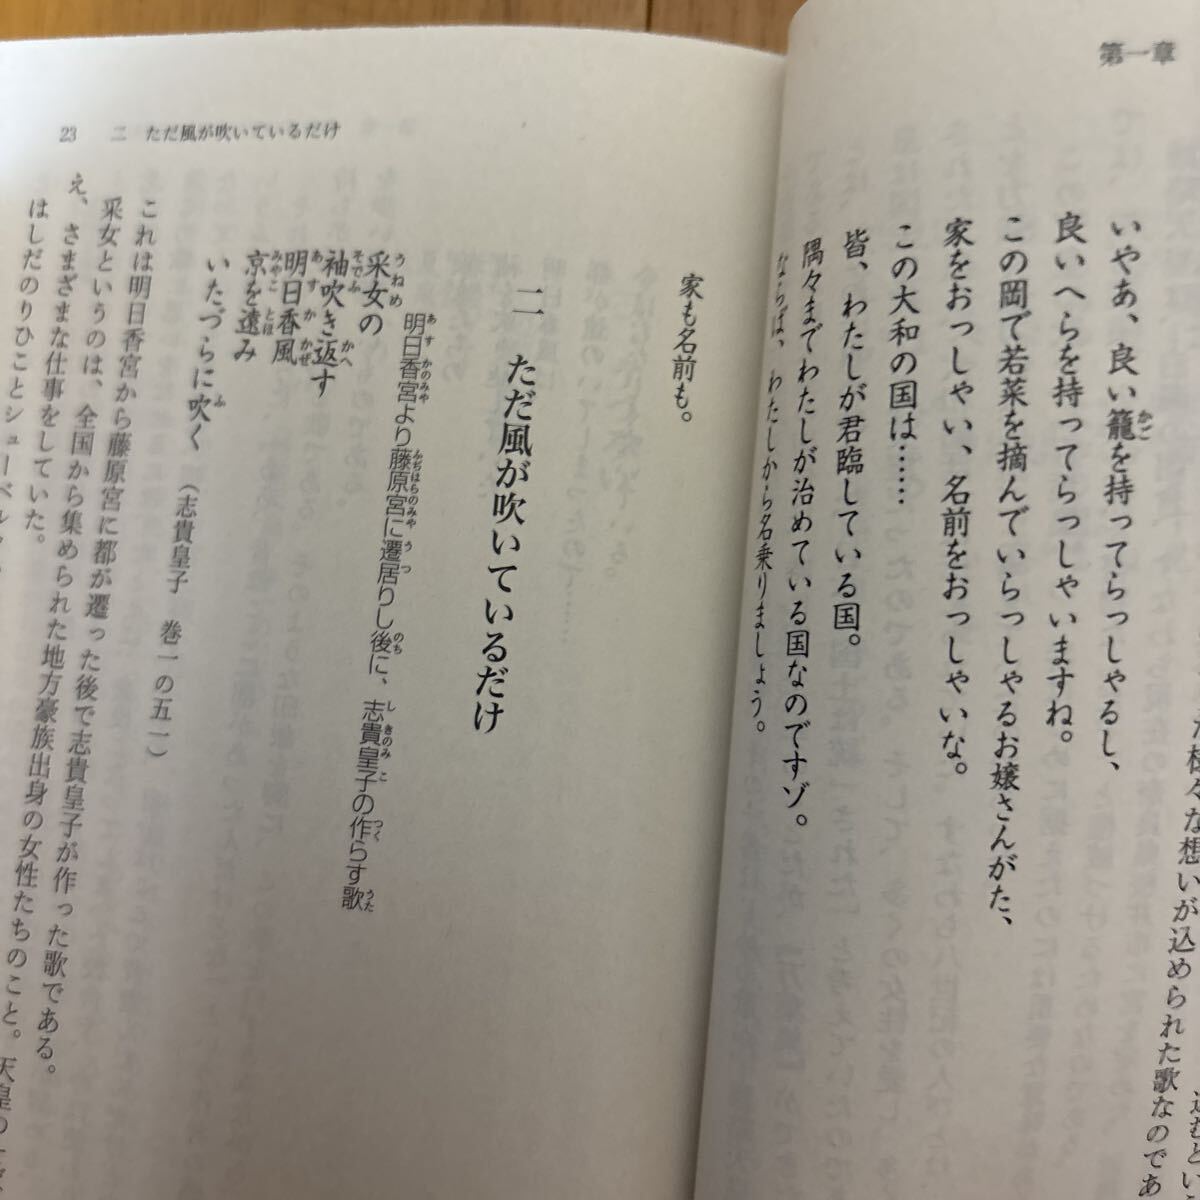 第一章
た様々な想いが込められた歌なのであ
いやあ、良い籠を持ってらっしゃるし、
良いへらを持ってらっしゃいますね。
この岡で若菜を摘んでいらっしゃるお嬢さんがた、
家をおっしゃい、名前をおっしゃいな。
この大和の国は……
皆、わたしが君臨している国。
隅々までわたしが治めている国なのですゾ。
ならば、わたしから名乗りましょう。
家も名前も。
23 二 ただ風が吹いているだけ
二 ただ風が吹いているだけ
明日香宮より藤原宮に遷居りし後に、志貴皇子の作らす歌
采女の
袖吹き返す
明日香風
京を遠み
いたづらに吹く (志貴皇子 巻一の五一)
これは明日香宮から藤原宮に都が遷った後で志貴皇子が作った歌である。
采女というのは、全国から集められた地方豪族出身の女性たちのこと。天皇の
え、さまざまな仕事をしていた。
はしだのりひことシューベル